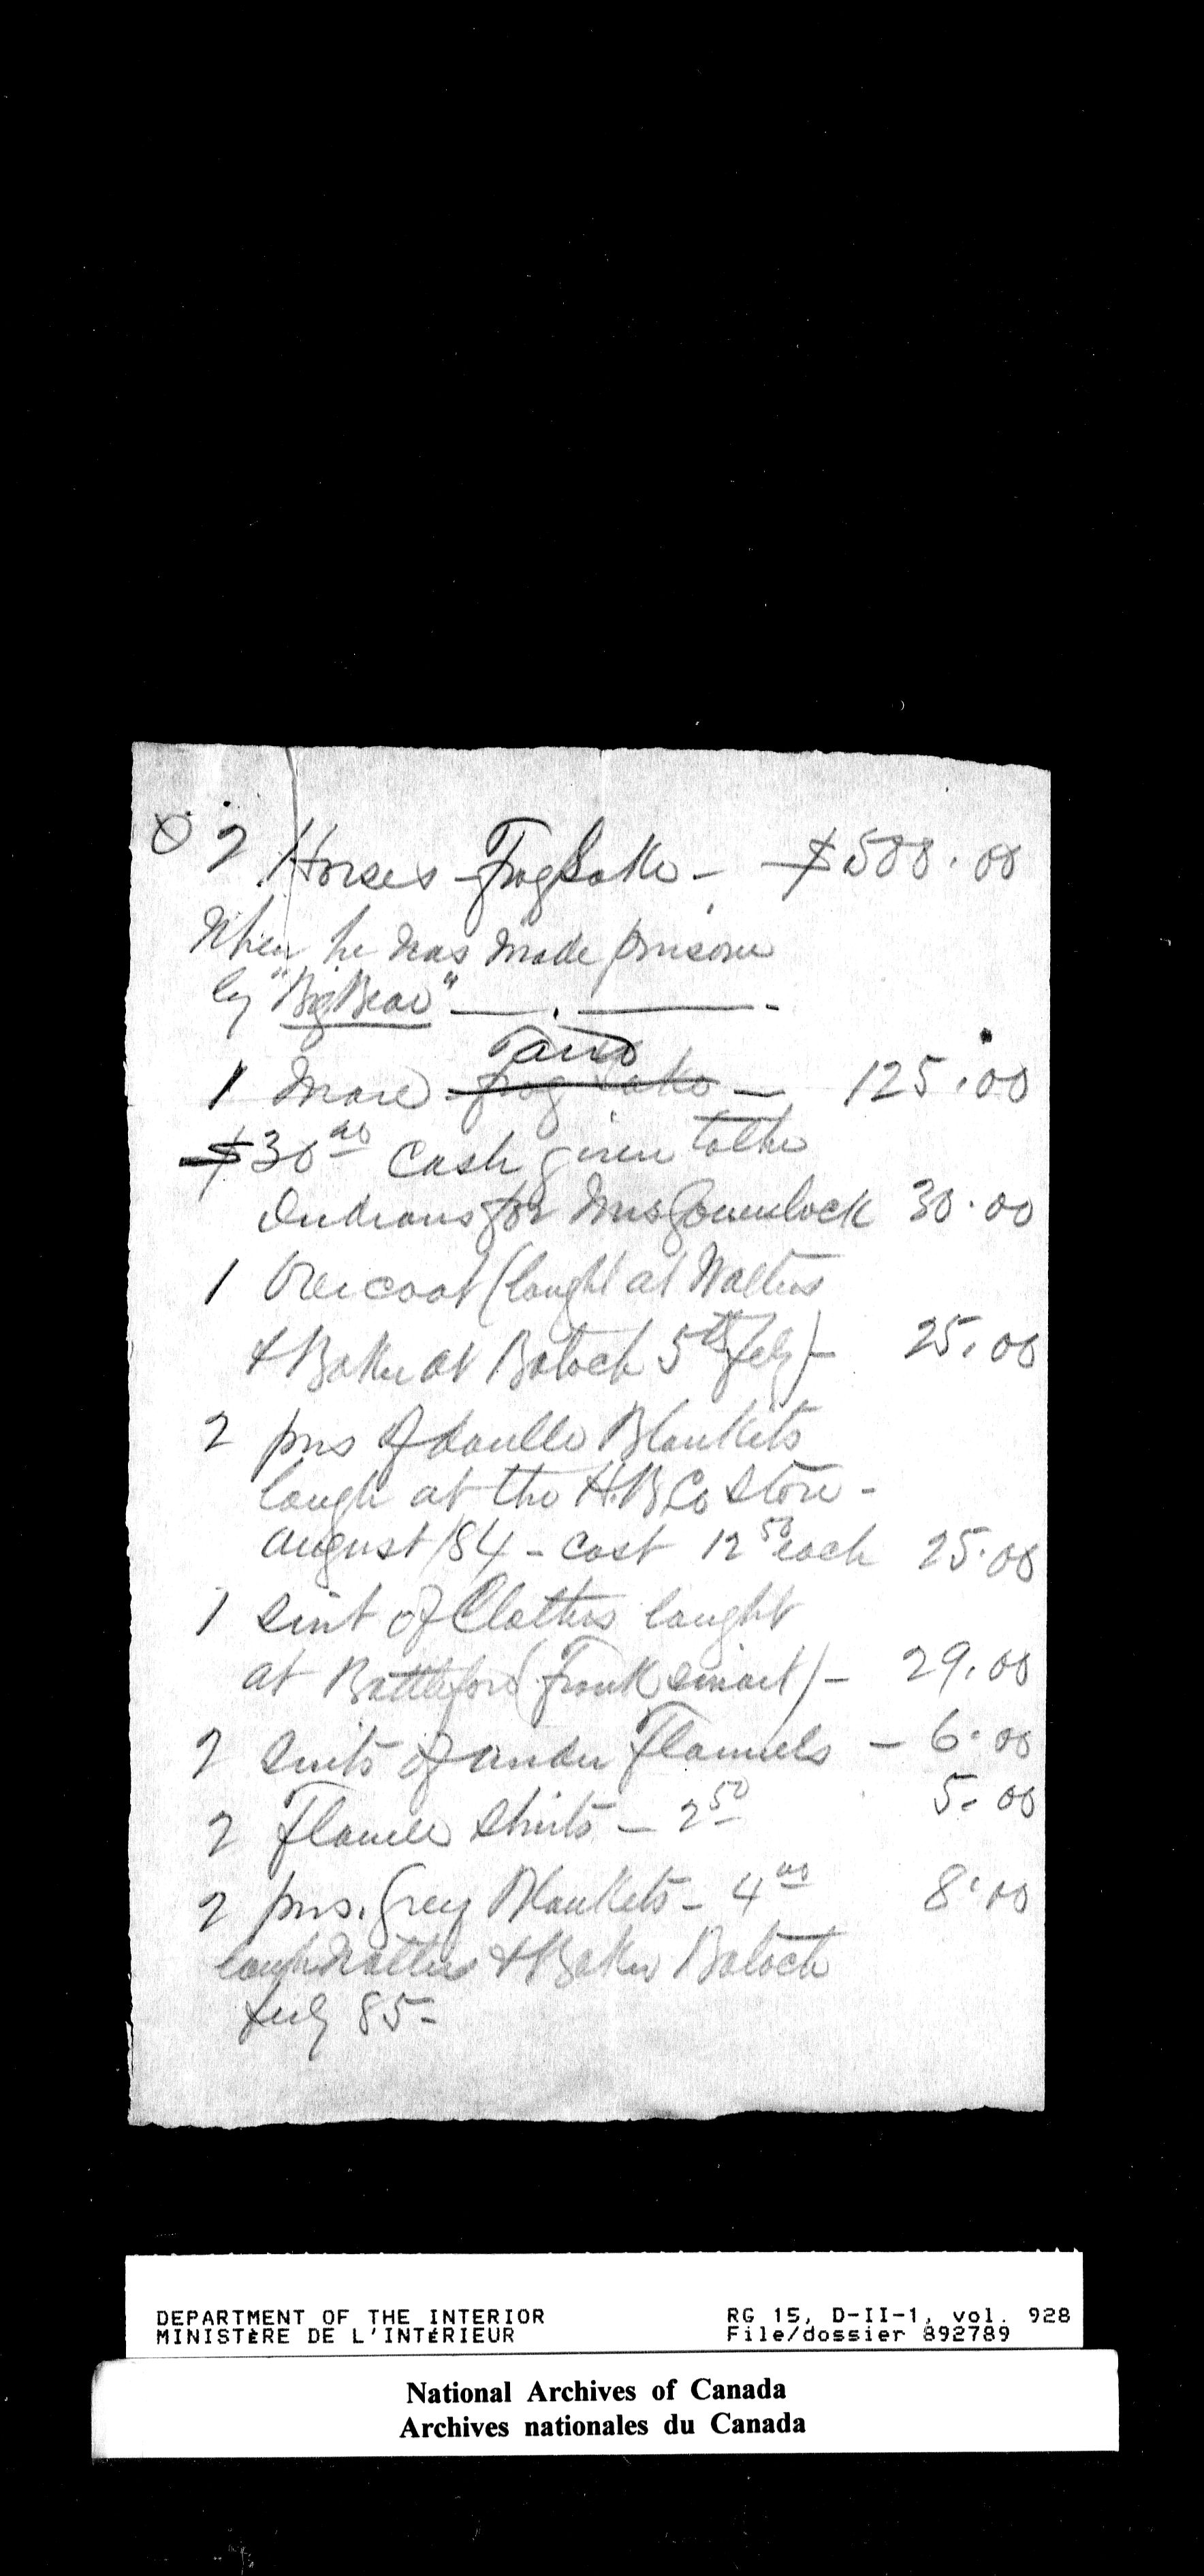 2 Horses Frog Lake - $500.00
When he was made prisoner
by "Big Bear" - . -
1 Mare Frog Lake - 125.00
$30.00 Cash given to the
Indians for Mrs Gowenlock 30.00
1 Overcoat (bought at Walters
& Baker at Batoch 5th July) - 25.00
2 prs of double Blankets
bought at the H.B.Co Store -
August /84 - cost 12.50 each 25.00
1 suit of Clothes bought
at Battleford (Frank Smart) - 29.00
2 suits of under Flannels - 6.00
2 Flannel Shirts - 2.50 5.00
2 prs. Grey Blankets - 4.00 8.00
bought Walters & Baker Batoch
July 85 -
DEPARTMENT OF THE INTERIOR
MINISTÈRE DE L'INTÉRIEUR
RG 15, D-II-1, vol. 928
File/dossier 892789
National Archives of Canada
Archives nationales du Canada